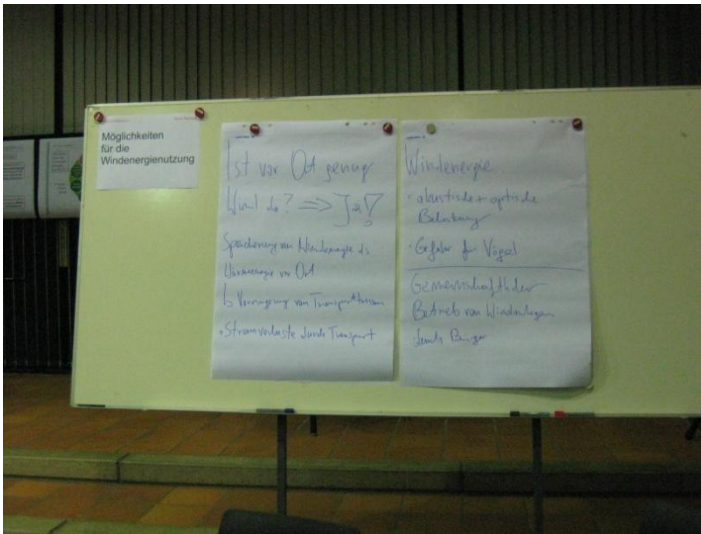 Möglichkeiten
für die
Windenergienutzung
Ist vor Ort genug
Wind da? => Ja!
Speicherung von Windenergie als
Wärmeenergie vor Ort
von
• Stromverluste durch Transport
Windenergie
• akustische + optische
Belastung
• Gefahr f. Vögel
Gemeinschaftlicher
Betrieb von Windanlagen
durch Bürger